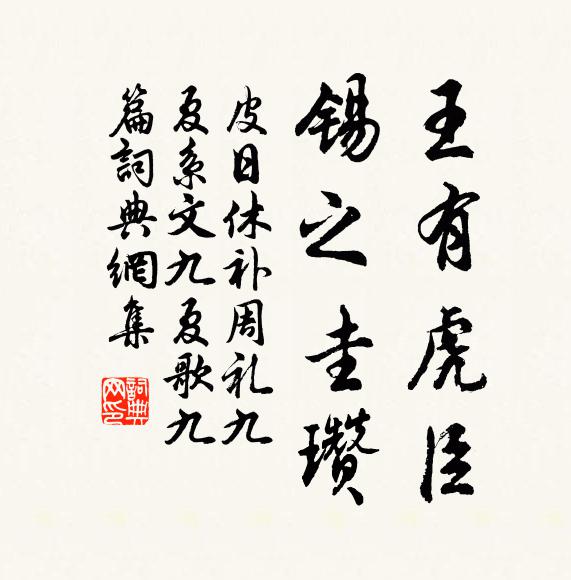 王有虎臣
锡之圭瓒
皮日休补周礼九
夏系文九夏歌九
篇詞典網集
詞典网印